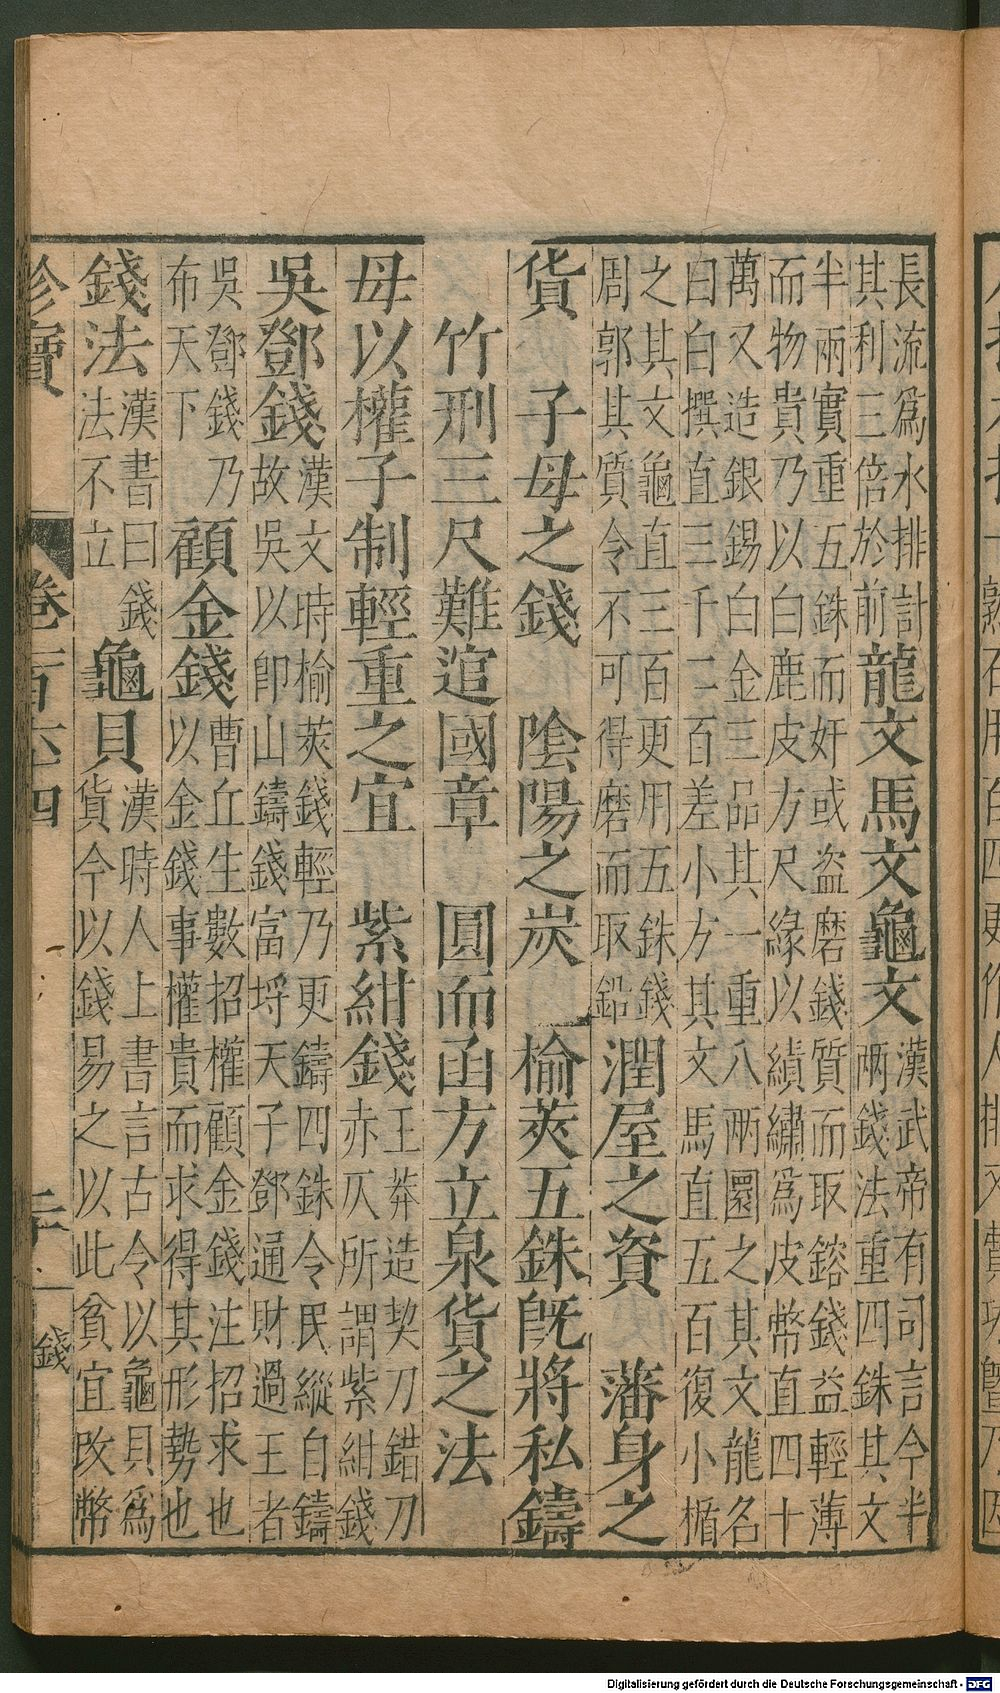 長流爲水排計
其利三倍於前
龍文馬文龜文
漢武帝有司言今半
兩錢法重四銖其文
半兩實重五銖而奸或盜磨錢質而取鎔錢益輕薄
而物貴乃以白鹿皮方尺緣以績繡爲皮幣直四十
萬又造銀錫白金三品其一重八兩圜之其文龍名
曰白撰直三千二百差小方其文馬直五百復小楯
之其文龜直三百更用五銖錢
周郭其質令不可得磨而取鉛
潤屋之資　藩身之
貨　子母之錢　陰陽之炭　榆莢五銖旣將私鑄
竹刑三尺難逭國章　圓而函方立泉貨之法
母以權子制輕重之宜　紫紺錢
王莽造契刀錯刀
赤仄所謂紫紺錢
吳鄧錢
漢文時榆莢錢輕乃更鑄四銖令民縱自鑄
故吳以卽山鑄錢富埒天子鄧通財過王者
吳鄧錢乃
布天下
顧金錢
曹丘生數招權顧金錢注招求也
以金錢事權貴而求得其形勢也
錢法
漢書曰錢
法不立
龜貝
漢時人上書言古令以龜貝爲
貨今以錢易之以此貧宜改幣
珍寶　百六四　錢
Digitalisierung gefördert durch die Deutsche Forschungsgemeinschaft - DFG